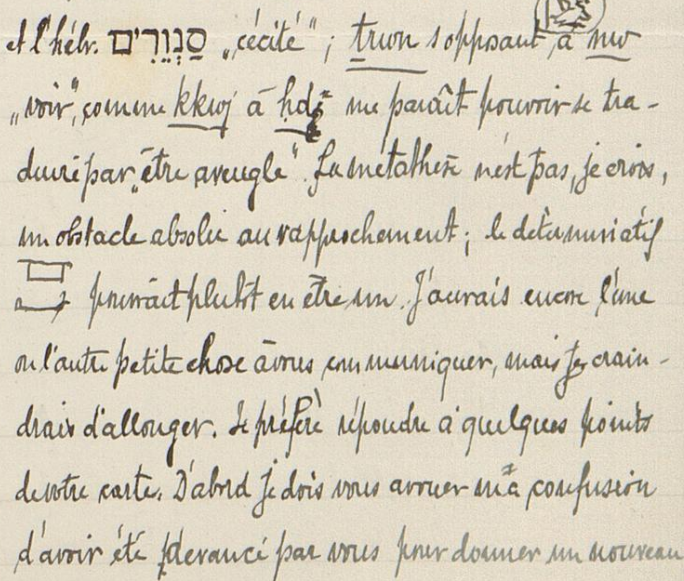 et l'hébr. סַנְוֵרִים „cécité"; trwn s'opposant à nw
„voir", comme kkwj à hd me paraît pouvoir se tra-
duire par „être aveugle". La métathèse n'est pas, je crois,
un obstacle absolu au rapprochement; le déterminatif
pourrait plutôt en être un. J'aurais encore l'une
ou l'autre petite chose à vous communiquer, mais je crain-
drais d'allonger. Je préfère répondre à quelques points
de votre carte. D'abord je dois vous avouer ma confusion
d'avoir été devancé par vous pour donner un nouveau